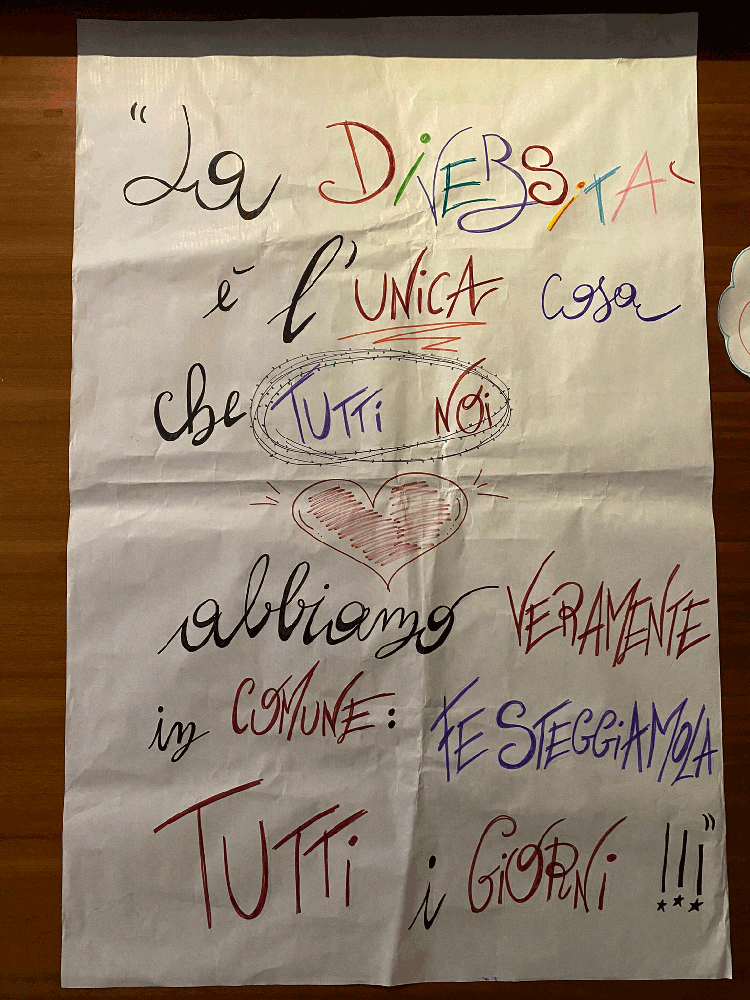 "La DiVERSiTA'
è l'UNiCA cosa
che TUTTi NOi
abbiamo VERAMENTE
in COMUNE: FESTEGGiAMOLA
TUTTi i GiORNi !!!"